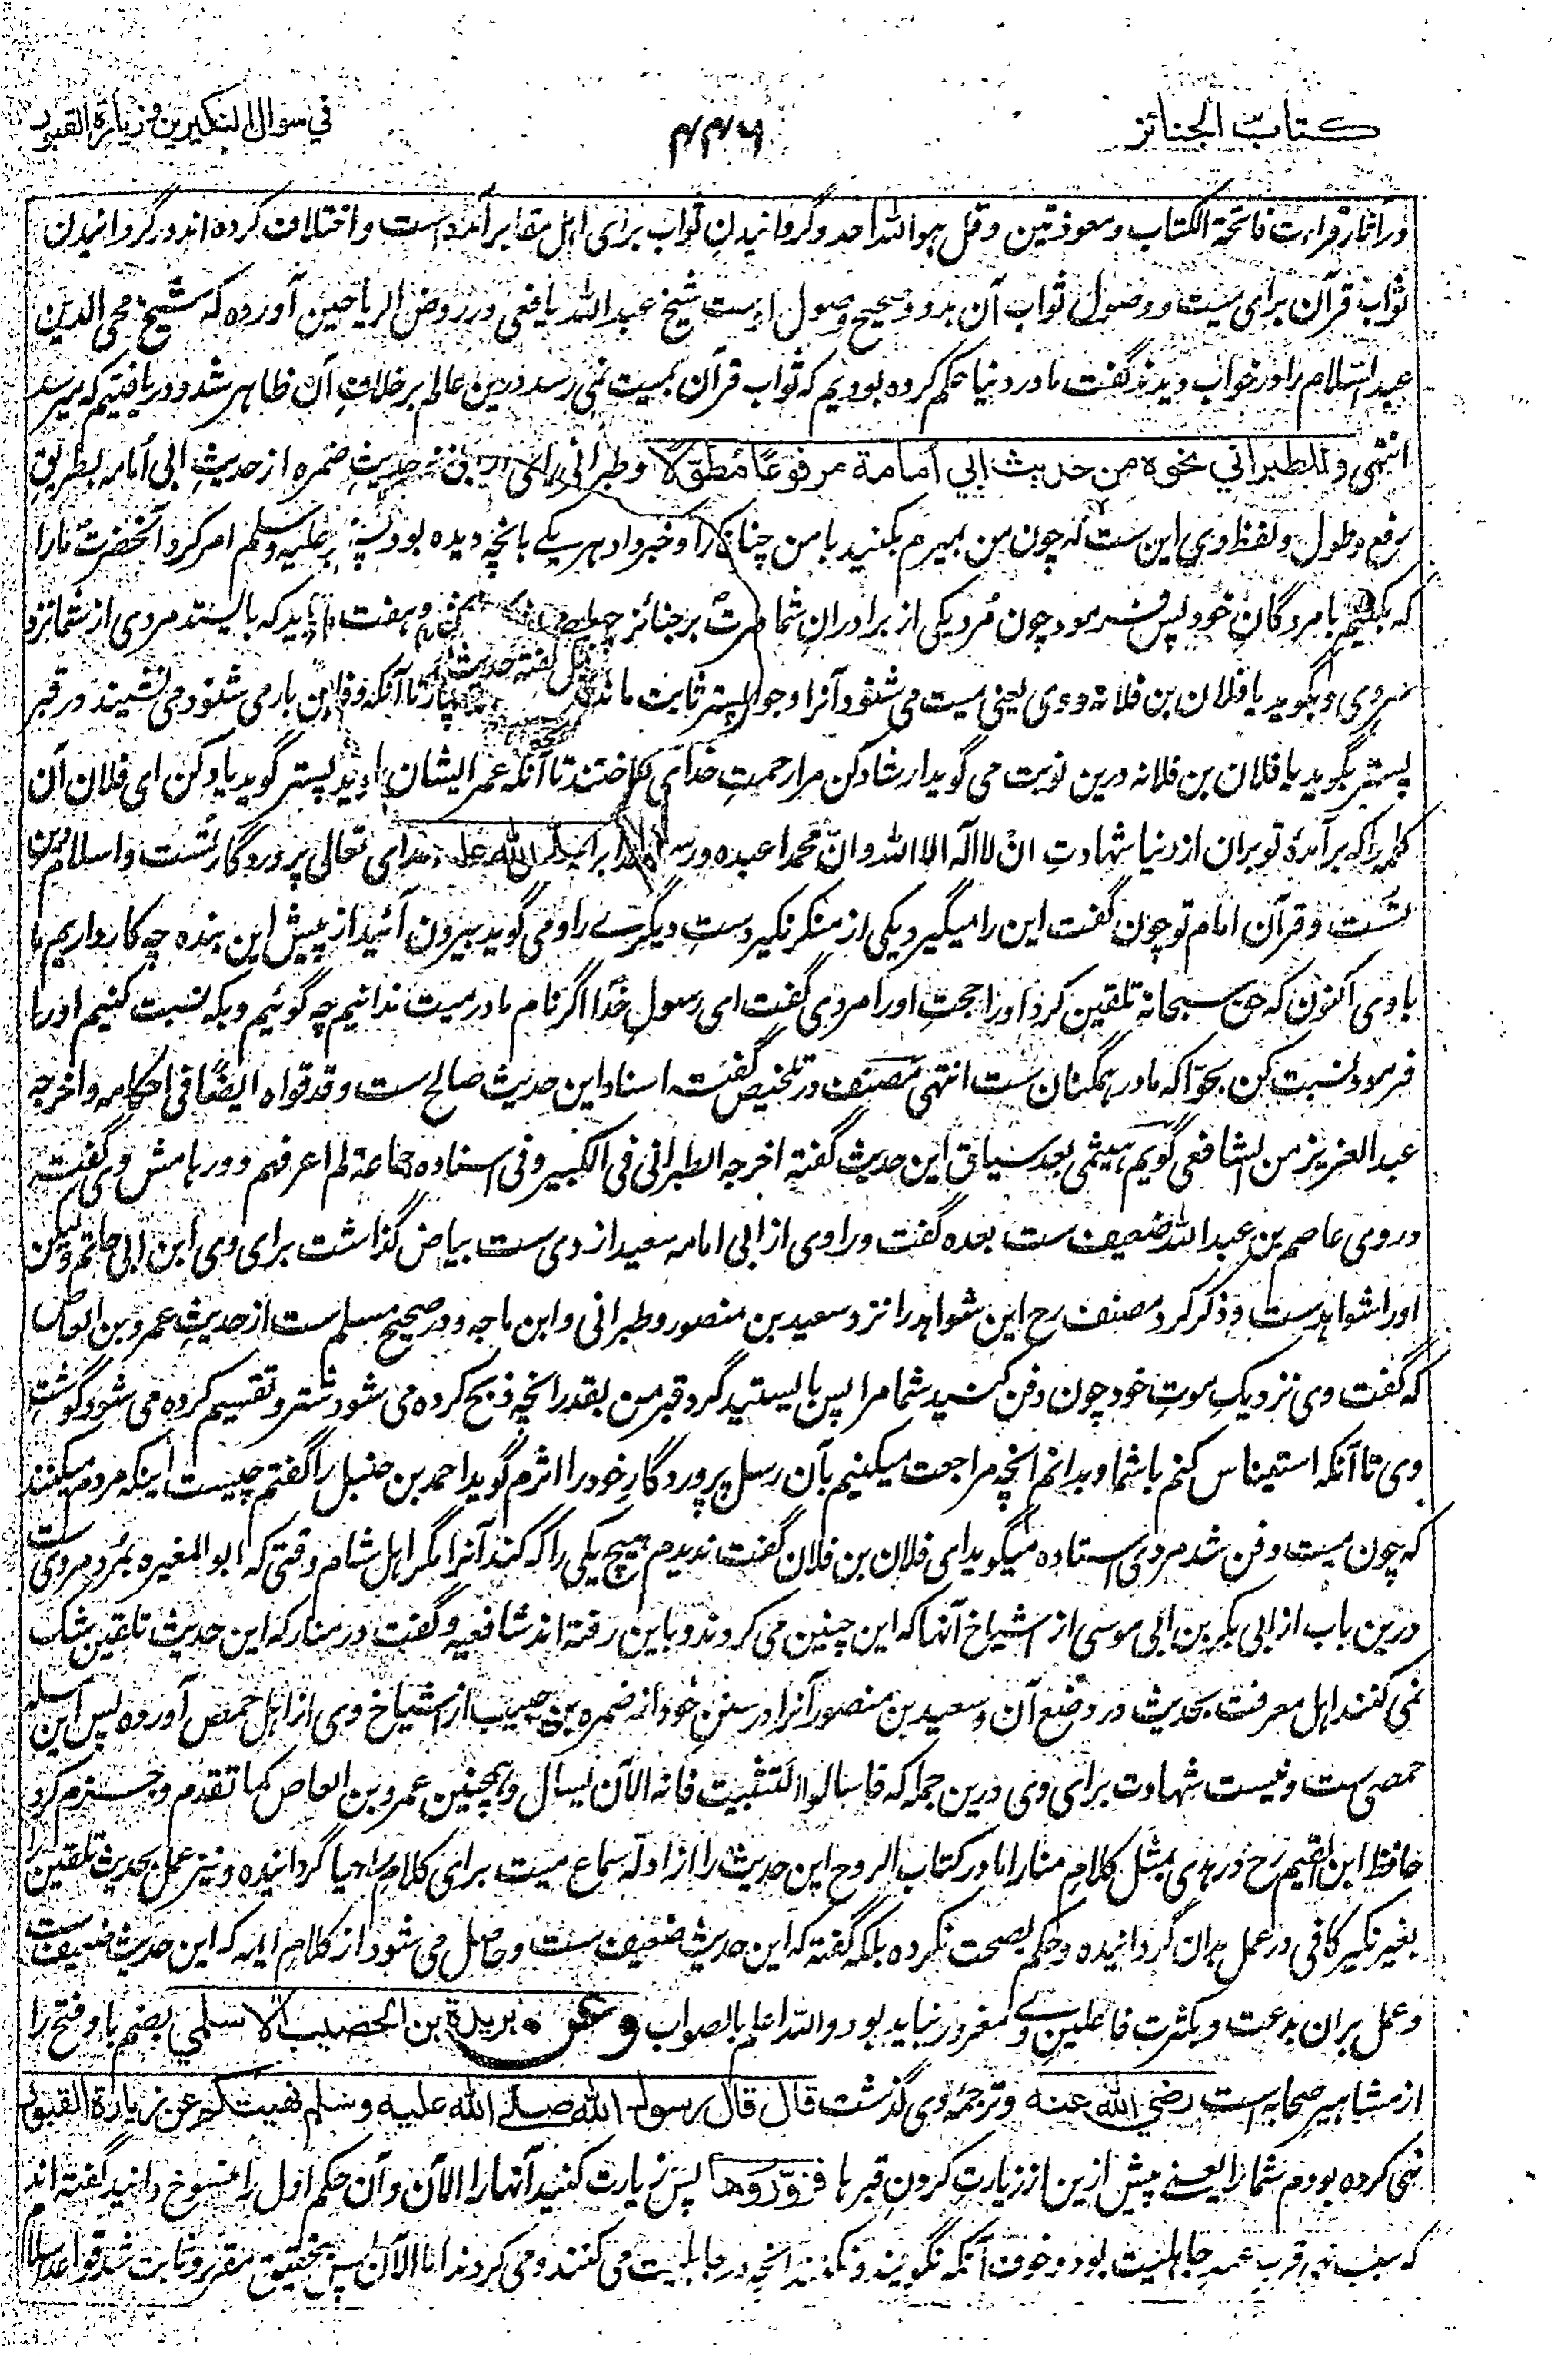 كتاب الجنائز
۴۴۶
في سوال النكيرين وزيارة القبور
در آثار قراءت فاتحة الکتاب و معوذتین و قل هو الله احد و گردانیدن ثواب برای اهل مقابر آمده است و اختلاف کرده اند در گردانیدن
ثواب قرآن برای میت و وصول ثواب آن بدو و صحیح وصول اوست شیخ عبد الله یافعی در روض الریاحین آورده که شیخ محی الدین
عبد السلام را در خواب دیدند گفت ما در دنیا حکم کرده بودیم که ثواب قرآن بمیت نمی رسد درین عالم بر خلاف آن ظاهر شد و دریافتیم که میرسد
انتهی وللطبراني نحوه من حديث ابي امامة مرفوعًا مُطوّلا و طبرانی را حدیث ضمره از حدیث ابی امامه بطریق
رفع و طول و لفظ وی این ست که چون من بمیرم بکنید با من چنانکه علیه وسلم امر کرد آنحضرت ما را
که بکنیم با مردگان خود پس فرمود چون مُرد یکی از برادران شما باید که بایستد مردی از شما نزد
سر وی و بگوید یا فلان بن فلانه و وی یعنی میت می شنود آنرا و جواب می نشیند در قبر
پستر بگوید یا فلان بن فلانه درین نوبت می گوید ارشاد کن مرا رحمت خدای پستر گوید یاد کن ای فلان آن
کلمه را که برآمدهٔ تو بران از دنیا شهادتِ انْ لا اله الا الله وانّ محمدا عبده ورسوله خدای تعالی پروردگار تُست و اسلام دین
تُست و قرآن امام تو چون گفت این را میگیرد یکی از منکر نکیر دستِ دیگرے را و می گوید بیرون آئید از پیش این بنده چه کار داریم ما
با وی اکنون که حق سبحانه تلقین کرد او را حجتِ او را مردی گفت ای رسولِ خدا اگر نام مادر میت ندانیم چه گوئیم و بکه نسبت کنیم او را
فرمود نسبت کن بحوّا که مادر همگنان ست انتهی مصنف در تلخیص گفته اسناد این حدیث صالح ست و قد قواه ایضًا فی احکامه و اخرجه
عبد العزیز من الشافعی گویم هیثمی بعد سیاق این حدیث گفته اخرجه الطبرانی فی الکبیر و فی اسناده جماعة لم اعرفهم و در هامش وی گفته
در وی عاصم بن عبد الله ضعیف ست بعده گفت و راوی از ابی امامه سعید ازدی ست بیاض گذاشت برای وی ابن ابی حاتم و لیکن
او را شواهد ست و ذکر کرد مصنف رح این شواهد را نزد سعید بن منصور و طبرانی و ابن ماجه و در صحیح مسلم ست از حدیثِ عمرو بن العاص
که گفت وی نزدیکِ موتِ خود چون دفن کنید شما مرا پس بایستید گرد قبر من بقدر آنچه ذبح کرده می شود شتر و تقسیم کرده می شود گوشتِ
وی تا آنکه استیناس کنم با شما و بدانم آنچه مراجعت میکنیم بآن رسل پروردگارِ خود را اثرم گوید احمد بن حنبل را گفتم چیست اینکه مردم میکنند
که چون میت دفن شد مردی استاده میگوید ای فلان بن فلان گفت ندیدم هیچ یکی را که کند آنرا مگر اهل شام وقتی که ابو المغیره بمُرد مروی ست
درین باب از ابی بکر بن ابی موسی از اشیاخ آنها که این چنین می کردند و باین رفته اند شافعیه و گفت در منار که این حدیث تلقین شک
نمی کنند اهل معرفت بحدیث در وضع آن و سعید بن منصور آنرا در سنن خود از ضمره بن حبیب از اشیاخ وی از اهل حمص آورده پس این مسئله
حمصی ست و نیست شهادت برای وی درین جمله که فاسالوا التثبیت فانه الآن یسال و همچنین عمرو بن العاص کما تقدم و جزم کرد
حافظ ابن القیم رح در هدی بمثل کلامِ منار اما در کتاب الروح این حدیث را از ادلّه سماع میت برای کلامِ احیا گردانیده و نیز عمل بحدیث تلقین را
بغیر نکیر کافی در عمل بدان گردانیده و حکم بصحت نکرده بلکه گفته که این حدیث ضعیف ست و حاصل می شود از کلامِ ایمه که این حدیث ضعیف ست
و عمل بران بدعت و بکثرت فاعلینِ وے مغرور نباید بود والله اعلم بالصواب وعن بريدة بن الحصيب الاسلمي بضم با و فتح را
از مشاهیر صحابه است رضي الله عنه و ترجمهٔ وی گذشت قال قال رسول الله صلے الله عليه وسلم نهيتكم عن زيارة القبور
نهی کرده بودم شما را یعنے پیش ازین از زیارت کردنِ قبرها فزوروها پس زیارت کنید آنها را الآن و آن حکم اول را منسوخ دانید گفته اند
که سبب نهی قرب عهدِ جاهلیت بود و خوف آنکه نگویند و نکنند آنچه در جاهلیت می کنند و می کردند اما الآن پس بتحقیق مقرر و ثابت شد قواعد اسلام